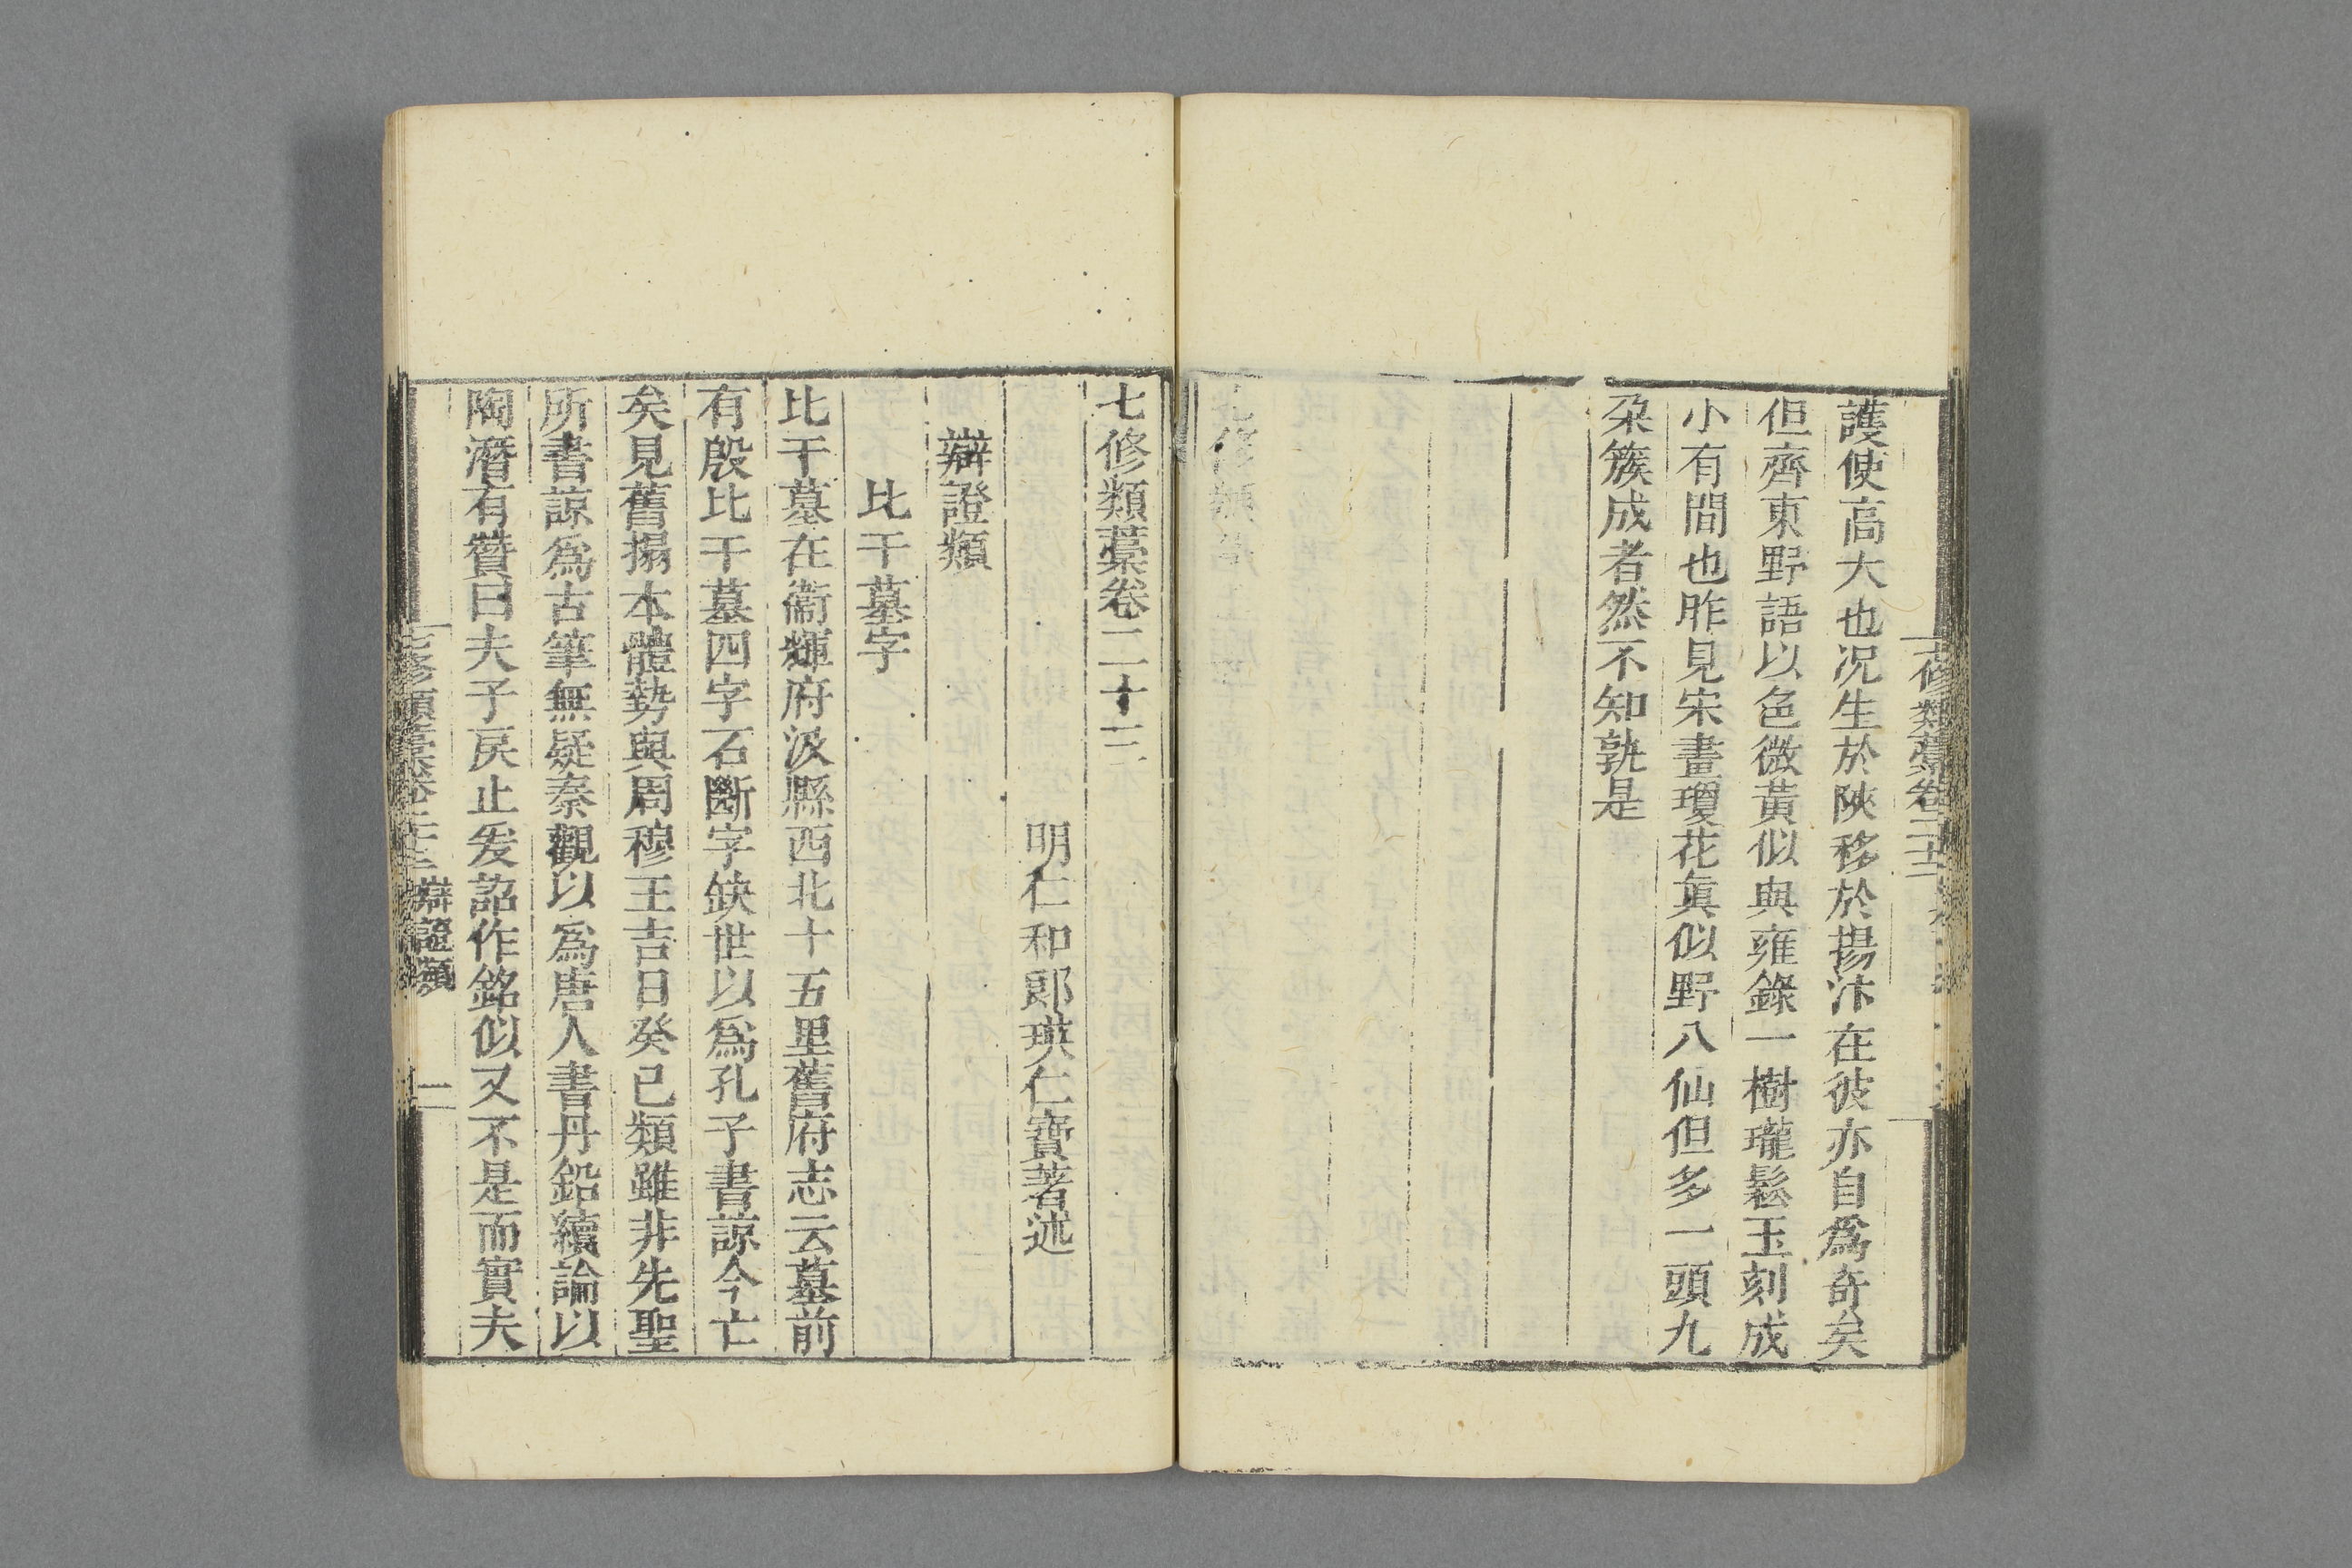 七修類藁卷二十二
護使高大也况生於陜移於揚汴在彼亦自爲奇矣
但齊東野語以色微黃似與雍錄一樹瓏鬆玉刻成
小有間也昨見宋畫瓊花眞似野八仙但多一頭九
朶簇成者然不知孰是
七修類藁卷二十三
明仁和郎瑛仁寶著述
辯證類
比干墓字
比干墓在衞輝府汲縣西北十五里舊府志云墓前
有殷比干墓四字石斷字鈌世以爲孔子書諒今亡
矣見舊搨本體勢與周穆王吉日癸巳類雖非先聖
所書諒爲古筆無疑秦觀以爲唐人書丹鉛續論以
陶潛有贊曰夫子戾止爰詔作銘似又不是而實夫
七修類藁卷二十三 辯證類 一